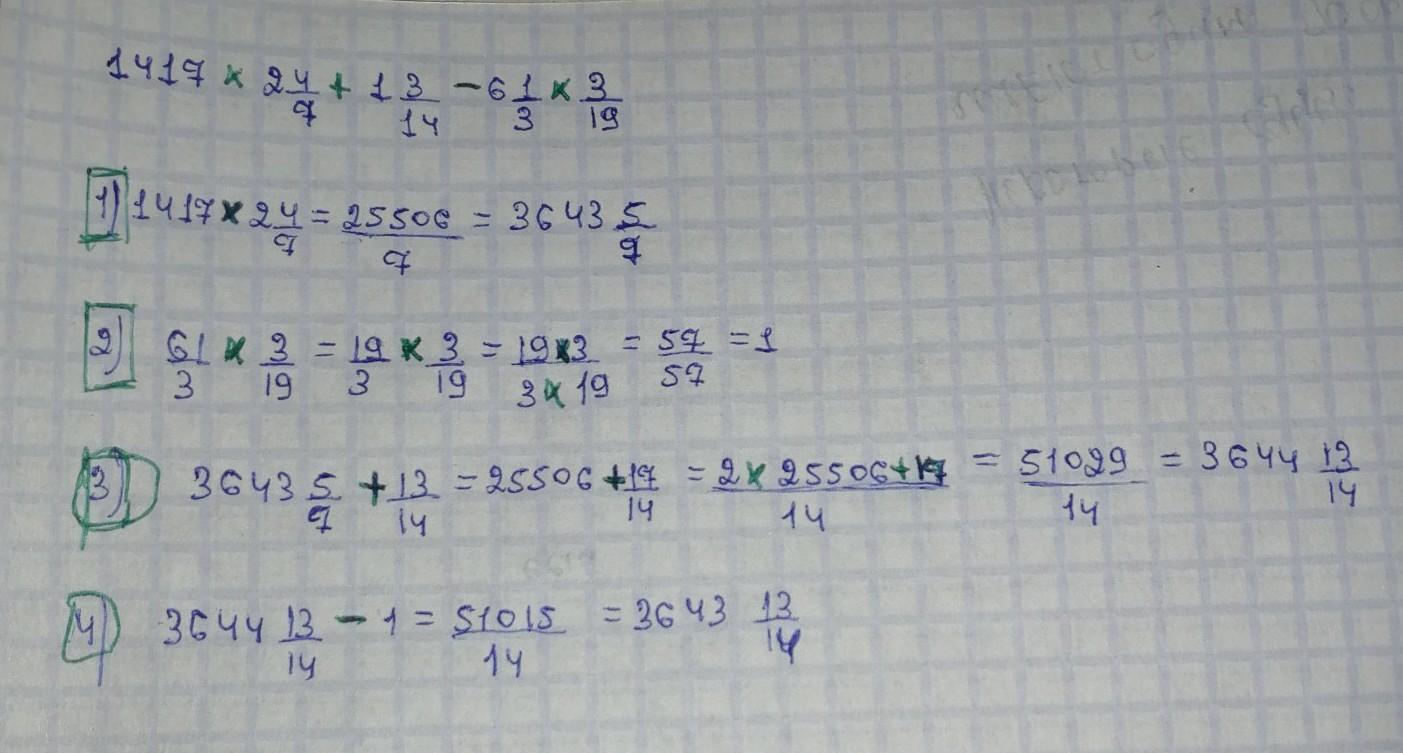 1417 × 2 4/7 + 1 3/14 - 6 1/3 × 3/19
1) 1417 × 2 4/7 = 25506/7 = 3643 5/7
2) 61/3 × 3/19 = 19/3 × 3/19 = 19×3/3×19 = 57/57 = 1
3) 3643 5/7 + 13/14 = 25506 + 17/14 = 2 × 25506+17/14 = 51029/14 = 3644 13/14
4) 3644 13/14 - 1 = 51015/14 = 3643 13/14